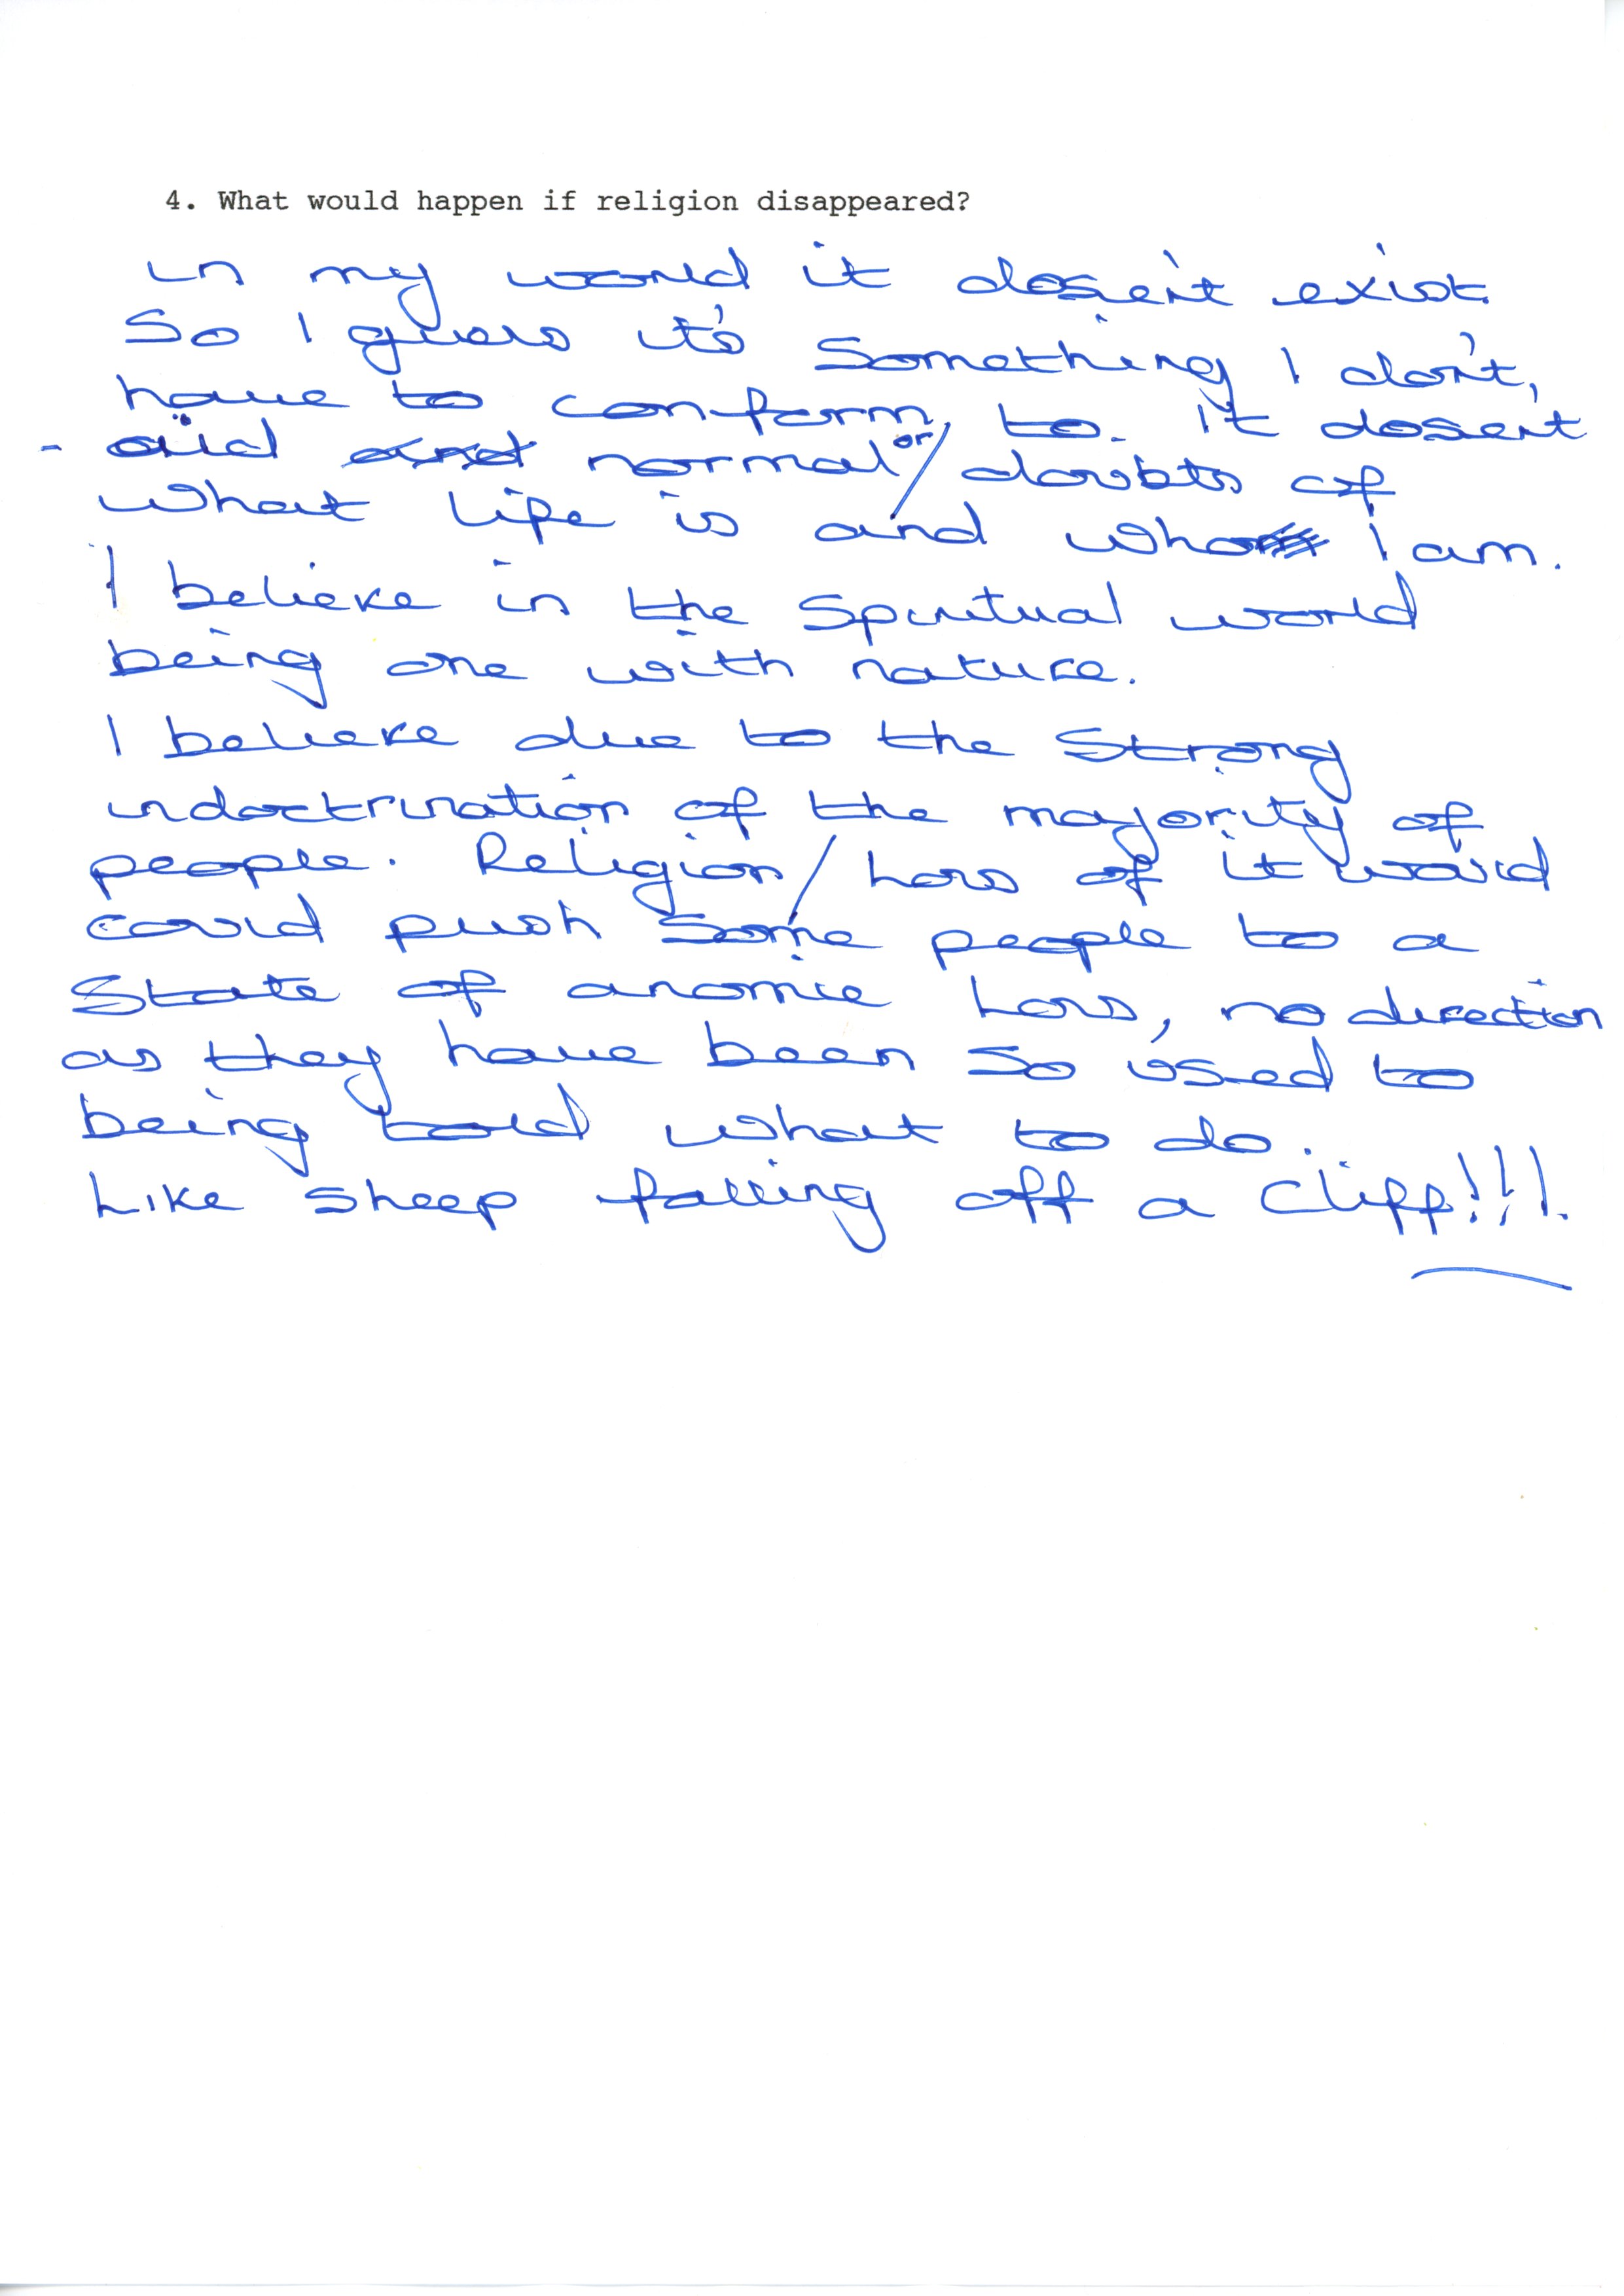 4. What would happen if religion disappeared?
in my world it dosen't exist
So I guess it's Something I don't,
have to conform to. It dosen't
- aid and normal or / doubts of
what life is and who I am.
I believe in the Spiritual world
being one with nature.
I believe due to the Strong
indoctrination of the majority of
people. Religion / Loss of it would
could push Some people to a
State of anomie Loss, no direction
as they have been so used to
being told what to do.
Like sheep falling off a Cliff!!!